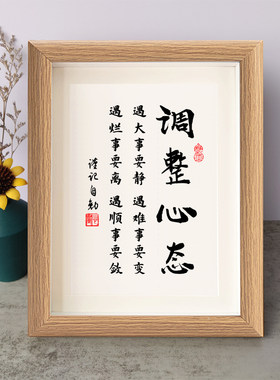 调整心态
遇大事要静 遇难事要变
遇烂事要离 遇顺事要敛
谨记自勉